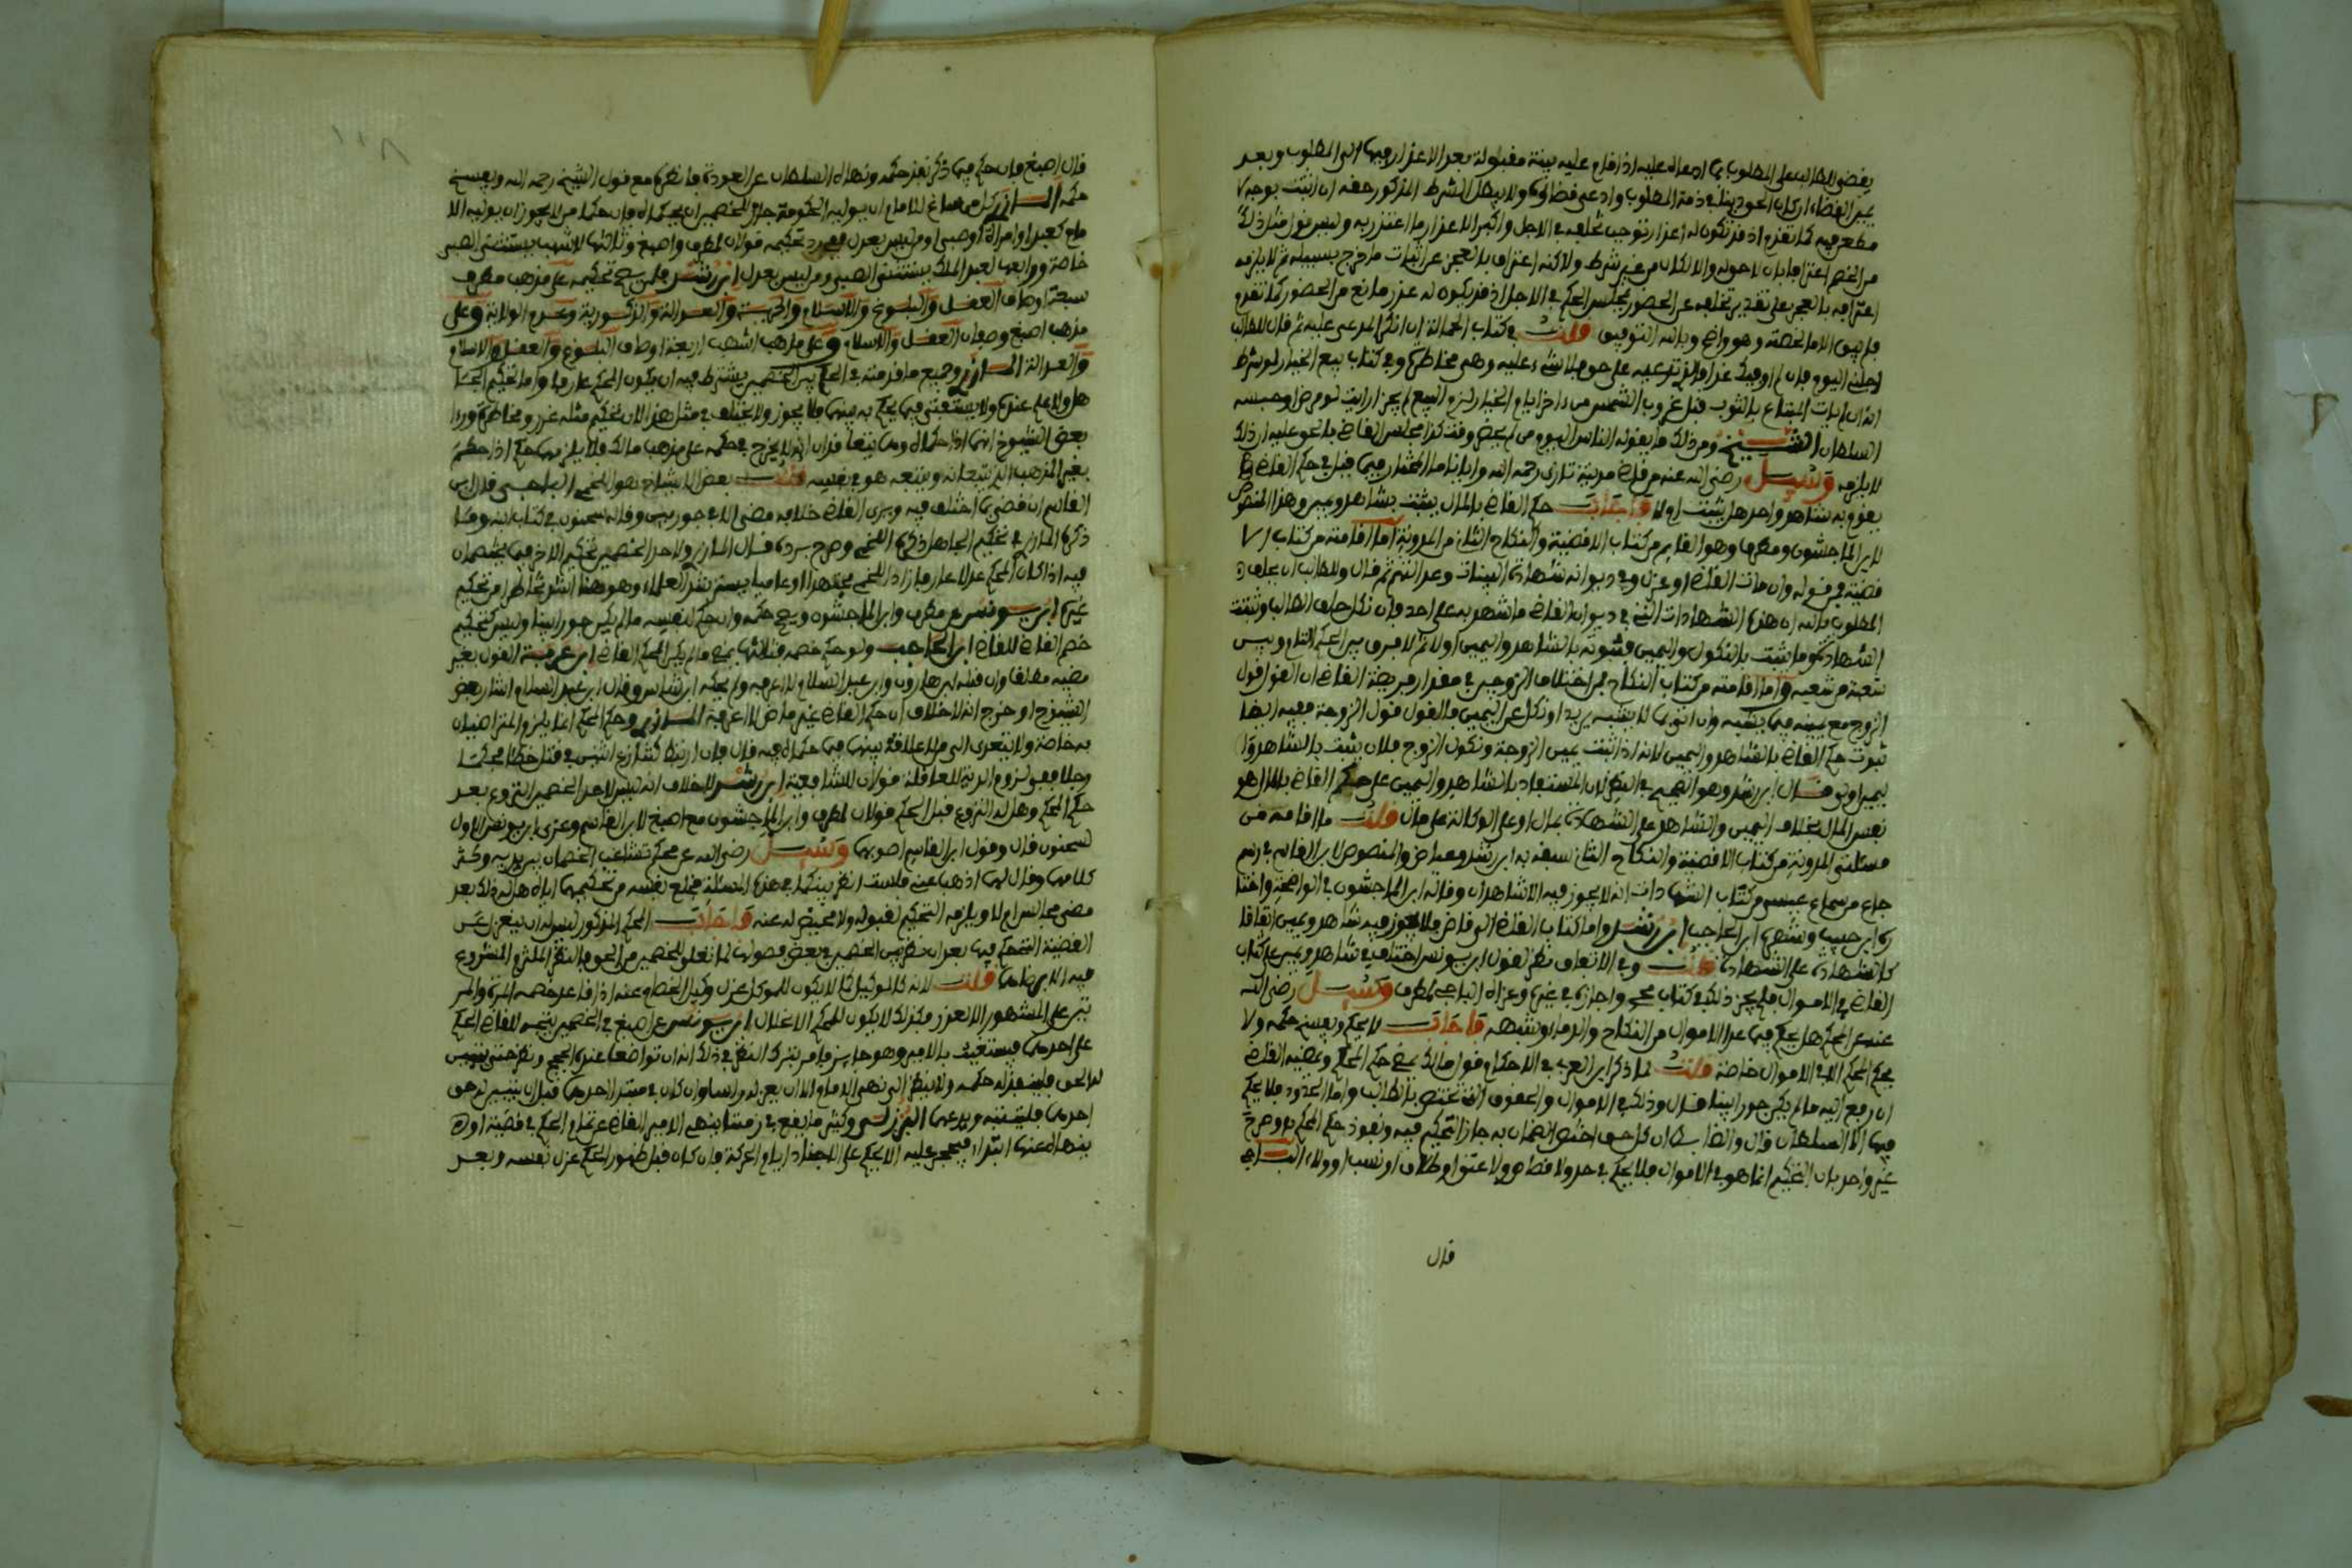 يقضى للطالب على المطلوب بما ادعاه عليه اذا قام عليه بينة مقبولة بعد الاعذار فيها الى المطلوب وبعد
مطعن فيه كما تقدم اذ قد تكون له اعذار توجب تخلفه في الاجل واكبر الاعذار ما اعتذر به وليس قول مثل ذلك
من الخصم اعترافا بان لا حق له والا لكان من غير شرط ولاكنه اعتراف بالعجز عن اثبات ما خرج بسبيله ثم لا يلزمه
اعترافه بالعجز على تقدير تخلفه عن الحضور لمجلس الحكم في الاجل اذ قد يكون له عذر مانع من الحضور كما تقدم
وهو واضح وبالله التوفيق قلت في كتاب الحمالة ان انكر المدعى عليه ثم قال للطالب
اجلني اليوم فان لم اوفيك غدا فالذي تدعيه على حق فلا شيء عليه وهي مخاطرة وفي كتاب بيع الخيار لو شرط
انه ان لم يات المبتاع بالثوب قبل غروب الشمس من اخر ايام الخيار لزم البيع لم يجز ارايت لو مرض او حبسه
السلطان الشيخ ومن ذلك ما يقوله الناس اليوم من لم يحضر وقت كذا مجلس القاضي فالحق عليه ان ذلك
لا يلزمه وسيل رضي الله عنه من قاضي مدينة تازى رحمه الله وايانا ما المختار فيما قيل في حكم القاضي
يقوم به شاهد واحد هل يثبت ام لا فاجاب حكم القاضي بالمال يثبت بشاهد ويمين وهذا المنصوص
لابن الماجشون ومطرف وهو القايم من كتاب الاقضية والنكاح الثاني من المدونة اما اقامته من كتاب الا
قضية فمن قوله وان مات القاضي او عزل وفي ديوانه شهادة البينات وعدالتهم ثم قال وللطالب ان يحلف
المطلوب بالله ان هذه الشهادات التي في ديوان القاضي ما شهد به علي احد فان نكل حلف الطالب وثبتت
الشهادة وما يثبت بالنكول واليمين فثبوته بالشاهد واليمين اولا ثم لا فرق بين الحكم التام وبين
شعبة من شعبه واما اقامته من كتاب النكاح فمن اختلاف الزوجين في مقدار فريضة القاضي ان القول قول
الزوج مع يمينه فيما يشبه وان اتى بما لا يشبه يريد او نكل عن اليمين فالقول قول الزوجة ففيه ايضا
ثبوت حكم القاضي بالشاهد واليمين لانه اذا ثبت بيمين الزوجة ونكول الزوج فلان يثبت بالشاهد وا
ليمين اولى وقال ابن رشد وهو الصحيح في النظر لان المستفاد بالشاهد واليمين على حكم القاضي بالمال هو
نفس المال بخلاف اليمين والشاهد على الشهادة بمال او على الوكالة على مال قلت ما اقامه من
مسئلتي المدونة من كتاب الاقضية والنكاح الثاني سبقه به ابن رشد وعياض والمنصوص لابن القاسم في رسم
جاع من سماع عيسى من كتاب الشهادات انه لا يجوز فيه الا شاهدان وقاله ابن الماجشون في الواضحة واختا
ره ابن حبيب وشهره ابن الحاجب ابن رشد واما كتاب القاضي الى قاض فلا يجوز فيه شاهد ويمين اتفاقا
كالشهادة على الشهادة قلت وفي الاتفاق نظر لقول ابن يونس اختلف في شاهد ويمين على كتاب
القاضي في الاموال فلم يجز ذلك في كتاب محمد واجازه في غيره وعزاه الباجي لمطرف وسيل رضي الله
عنه عن المحكم هل يحكم فيما عدا الاموال من النكاح والدماء وشبهه فاجاب لا يحكم ويفسخ حكمه ولا
يحكم المحكم الا في الاموال خاصة قلت لما ذكر ابن العربي في الاحكام قول مالك يمضي حكم المحكم ويمضيه القاضي
ان رفع اليه ما لم يكن جورا بينا قال وذلك في الاموال والحقوق التي تختص بالطالب واما الحدود فلا يحكم
فيها الا السلطان قال والضابط ان كل حق اختص الخصمان به جاز التحكيم فيه ونفوذ حكم المحكم به وصرح
غير واحد بان التحكيم انما هو في الاموال فلا يحكم في حد ولا قصاص ولا عتق او طلاق او نسب او ولاء
قال
قال اصبغ فان حكم فيما ذكر نفذ حكمه ونهاه السلطان عن العودة فانظره مع قول الشيخ رحمه الله ويفسخ
حكمه المازري كل من ساغ للامام ان يوليه الحكومة جاز للخصمين ان يحكماه فان حكما من لا يجوز ان يوليه الا
مام كعبد او امراة او صبي او من ليس بعدل ففي رد تحكيمه قولان لمطرف واصبغ وثالثها لاشهب يستثنى الصبي
خاصة ورابعها لعبد الملك يستثنى الصبي ومن ليس بعدل ابن رشد فلمن يصح تحكيمه على مذهب مطرف
سبعة اوصاف العقل والبلوغ والاسلام والحرية والعدالة والذكورية وعدم الولاية وعلى
مذهب اصبغ وصفان العقل والاسلام وعلى مذهب اشهب اربعة اوصاف البلوغ والعقل والاسلام
والعدالة المازري وجميع ما قدمته في الحكم بين الخصمين يشترط فيه ان يكون المحكم عارفا واما تحكيم الجا
هل ولا علم عنده ولا يستفتي فيما يحكم به بينهما فلا يجوز ولا يختلف في مثل هذا لان تحكيم مثله غرر ومخاطرة ورءا
بعض الشيوخ انهما اذا حكماه وهما تبعا فلان انه لا يخرج في حكمه على مذهب مالك فلا يلزمهما حكم اذا حكم
بغير المذهب الذي يتبعانه ويتبعه هو في نفسه قلت بعض الاشياخ هو اللخمي الباجي قال ابن
القاسم ان قضى بما اختلف فيه ويرى القاضي خلافه مضى الا في جور بين وقاله سحنون في كتاب ابنه وما
ذكره المازري في تحكيم الجاهل ذكره اللخمي وصرح برده قال المازري ولاحد الخصمين تحكيم الاخر فيما يختصمان
فيه اذا كان المحكم عدلا عارفا زاد اللخمي مجتهدا او عاميا يسترشد العلماء وهو هنا اشد تخاطرا من تحكيم
غيره ابن يونس عن مطرف وابن الماجشون ويصح حكمه وان حكم لنفسه ما لم يكن جورا بينا وليس كتحكيم
خصم القاضي للقاضي ابن الحاجب ولو حكم خصمه فثالثها يمضي ما لم يكن المحكم القاضي ابن عرفة القول بغير
مضيه مطلقا وان قبله ابن هارون وابن عبد السلام لا اعرفه ولم يحكه ابن شاس وقال ابن عبد السلام اشار بعض
الشيوخ او خرج انه لا خلاف ان حكم القاضي غير ماض لا اعرفه المازري وحكم المحكم انما يلزم المتراضيان
به خاصة ولا يتعدى الى من لا علاقة بينهما فيما حكماه فيه قال فان ارتضا متنازعا اثنين في قتل خطا محكما
رجلا ففي لزوم الدية للعاقلة قولان للشافعية ابن رشد لا خلاف انه ليس لاحد الخصمين النزوع بعد
حكم المحكم وهل له النزوع قبل الحكم قولان لمطرف وابن الماجشون مع اصبغ لابن القاسم وعزى ابن يونس الاول
لسحنون قال وقول ابن القاسم اصوبها وسيل رضي الله عن محكم تشاغب الخصمان بين يديه وكثر
كلامهما وقال لهما اذهبا عني فلست انظر بينكما في هذه المسئلة فخلع نفسه من تحكيمهما اياه هل له ذلك بعد
مضي مجالس ام لا ويلزمه التحكيم لقبوله ولا محيص له عنه فاجاب المحكم المذكور ليس له ان ينعزل عن
القضية المحكم فيها بعد ان نظر بين الخصمين في بعض فصولها لما تعلق للخصمين من الحق بالنظر الملتزم المشروع
فيه الا برضاهما قلت لانه كالوكيل كما لا يكون للموكل عزل وكيل الخصام عنه اذا قاعد خصمه المرة والمر
تين على المشهور الا لعذر فكذلك لا يكون للمحكم الانحلال ابن يونس عن اصبغ في الخصمين يتبين للقاضي الحكم
على احدهما فيستغيث بالامير وهو جاير فامر بترك النظر في ذلك انه ان تواضعا عنده الحجج ونظر حتى تبين
له الحق فلينفذ له حكمه ولا ينظر الى نهي الامام الا ان يعزله راسا وان كان في مبتدا امرهما قبل ان يتبين له حق
احدهما فلينته ويدعهما البرزلي وكثيرا ما يقع في زمننا ينهى الامير القاضي عن تمام الحكم في قضية او
ينهاه عنها ابتداء فيحجر عليه الا يحكم على الاجناد ايام الحركة فان كان قبل ظهور الحكم عزل نفسه وبعد